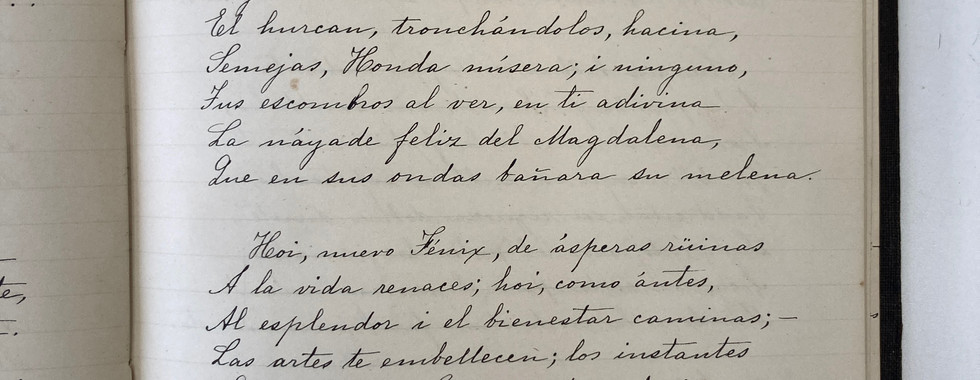 El hurcan, tronchándolos, hacina,
Semejas, Honda mísera; i ninguno,
Tus escombros al ver, en ti adivina
La náyade feliz del Magdalena,
Que en sus ondas bañara su melena.
Hoi, nuevo Fénix, de ásperas rüinas
A la vida renaces; hoi, como ántes,
Al esplendor i el bienestar caminas;—
Las artes te embellecen; los instantes